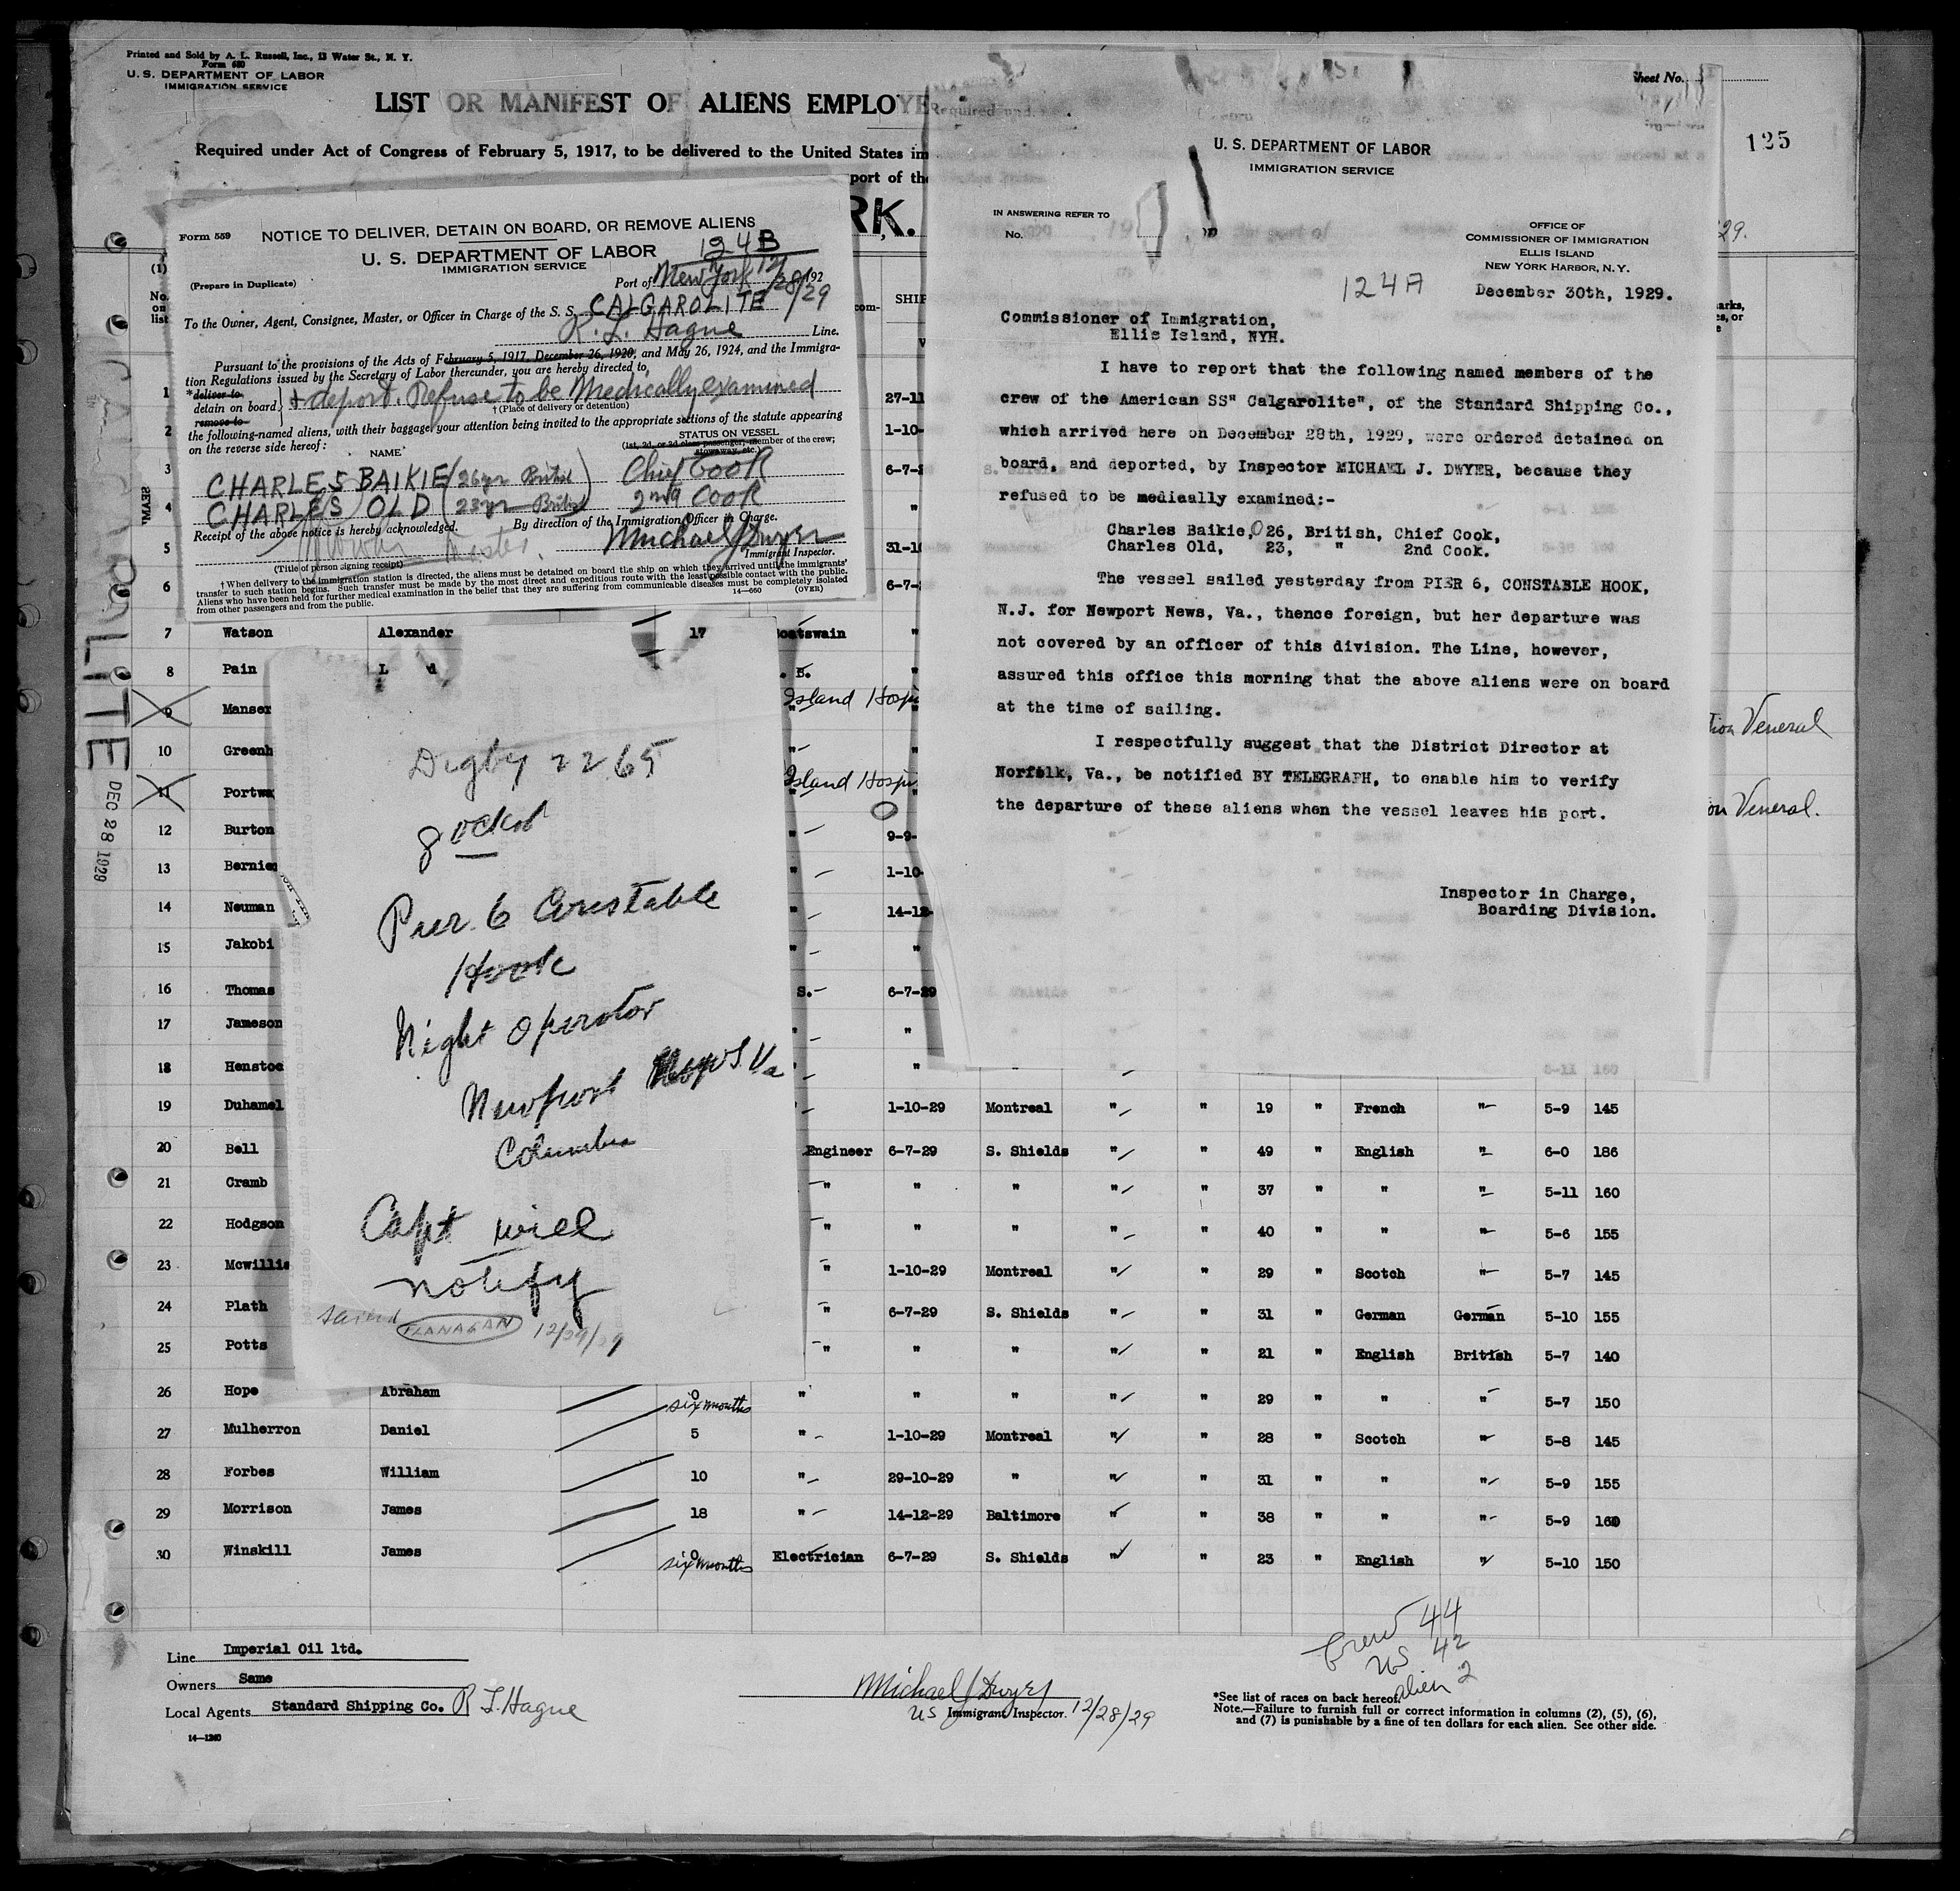 Printed and Sold by A. L. Russell, Inc., 13 Water St., N. Y.
Form 680
U. S. DEPARTMENT OF LABOR
IMMIGRATION SERVICE
LIST OR MANIFEST OF ALIENS EMPLOYE
Required under Act of Congress of February 5, 1917, to be delivered to the United States im
port of the
RK.
Sheet No.
125
29.
CALGAROLITE
DEC 28 1929
Form 559
NOTICE TO DELIVER, DETAIN ON BOARD, OR REMOVE ALIENS
124B
U. S. DEPARTMENT OF LABOR
IMMIGRATION SERVICE
(Prepare in Duplicate)
Port of New York 12/28/29 192
To the Owner, Agent, Consignee, Master, or Officer in Charge of the S. S. CALGAROLITE
R. L. Hague Line.
Pursuant to the provisions of the Acts of February 5, 1917, December 26, 1920, and May 26, 1924, and the Immigra-
tion Regulations issued by the Secretary of Labor thereunder, you are hereby directed to
*deliver to
detain on board
remove to
+ deport. Refuse to be Medically examined
†(Place of delivery or detention)
the following-named aliens, with their baggage, your attention being invited to the appropriate sections of the statute appearing
on the reverse side hereof:
NAME
STATUS ON VESSEL
(1st, 2d, or 3d class passenger; member of the crew;
stowaway, etc.)
CHARLES BAIKIE (26yr British) Chief Cook
CHARLES OLD (23yr British) 2nd Cook
Receipt of the above notice is hereby acknowledged.
By direction of the Immigration Officer in Charge.
Master.
Michael J Dwyer
Immigrant Inspector.
(Title of person signing receipt)
†When delivery to the immigration station is directed, the aliens must be detained on board the ship on which they arrived until the immigrants'
transfer to such station begins. Such transfer must be made by the most direct and expeditious route with the least possible contact with the public.
Aliens who have been held for further medical examination in the belief that they are suffering from communicable diseases must be completely isolated
from other passengers and from the public.
14—660 (OVER)
U. S. DEPARTMENT OF LABOR
IMMIGRATION SERVICE
IN ANSWERING REFER TO
No.
OFFICE OF
COMMISSIONER OF IMMIGRATION
ELLIS ISLAND
NEW YORK HARBOR, N. Y.
124A
December 30th, 1929.
Commissioner of Immigration,
Ellis Island, NYH.
I have to report that the following named members of the
crew of the American SS" Calgarolite", of the Standard Shipping Co.,
which arrived here on December 28th, 1929, were ordered detained on
board, and deported, by Inspector MICHAEL J. DWYER, because they
refused to be medically examined:-
Charles Baikie, 26, British, Chief Cook,
Charles Old, 23, " 2nd Cook.
The vessel sailed yesterday from PIER 6, CONSTABLE HOOK,
N.J. for Newport News, Va., thence foreign, but her departure was
not covered by an officer of this division. The Line, however,
assured this office this morning that the above aliens were on board
at the time of sailing.
I respectfully suggest that the District Director at
Norfolk, Va., be notified BY TELEGRAPH, to enable him to verify
the departure of these aliens when the vessel leaves his port.
Inspector in Charge,
Boarding Division.
Digby 2265
8 oclock
Pier 6 Constable
Hook
Night Operator
Newport News Va
Columbia
Capt will
notify
Sailed FLANAGAN 12/29/29
(1)
No.
on
list
com-
SHIP
1 27-11
2 1-10-
3 6-7-2
4 "
5 31-10
6 6-7-
7 Watson Alexander 17 Boatswain "
8 Pain L d . B. "
9 Manser Island Hospi tion Venereal
10 Greenh " "
11 Portwa Island Hospi on Venereal.
12 Burton " 9-9-
13 Bernie " 1-10-
14 Neuman " 14-12-
15 Jakobi " "
16 Thomas S. 6-7-29
17 Jameson " "
18 Henstoc " "
19 Duhamel 1-10-29 Montreal " " 19 " French " 5-9 145
20 Bell Engineer 6-7-29 S. Shields " " 49 " English " 6-0 186
21 Cramb " " " " " 37 " " " 5-11 160
22 Hodgson " " " " " 40 " " " 5-6 155
23 Mcwillis " 1-10-29 Montreal " " 29 " Scotch " 5-7 145
24 Plath " 6-7-29 S. Shields " " 31 " German German 5-10 155
25 Potts " " " " " 21 " English British 5-7 140
26 Hope Abraham 0 six months " " " " " 29 " " " 5-7 150
27 Mulherron Daniel 5 " 1-10-29 Montreal " " 28 " Scotch " 5-8 145
28 Forbes William 10 " 29-10-29 " " " 31 " " " 5-9 155
29 Morrison James 18 " 14-12-29 Baltimore " " 38 " " " 5-9 160
30 Winskill James 0 six months Electrician 6-7-29 S. Shields " " 23 " English " 5-10 150
Crew 44
US 42
alien 2
Line Imperial Oil ltd.
Owners Same
Local Agents Standard Shipping Co. R L. Hague
14—1240
Michael J Dwyer
US Immigrant Inspector. 12/28/29
*See list of races on back hereof.
Note.—Failure to furnish full or correct information in columns (2), (5), (6),
and (7) is punishable by a fine of ten dollars for each alien. See other side.